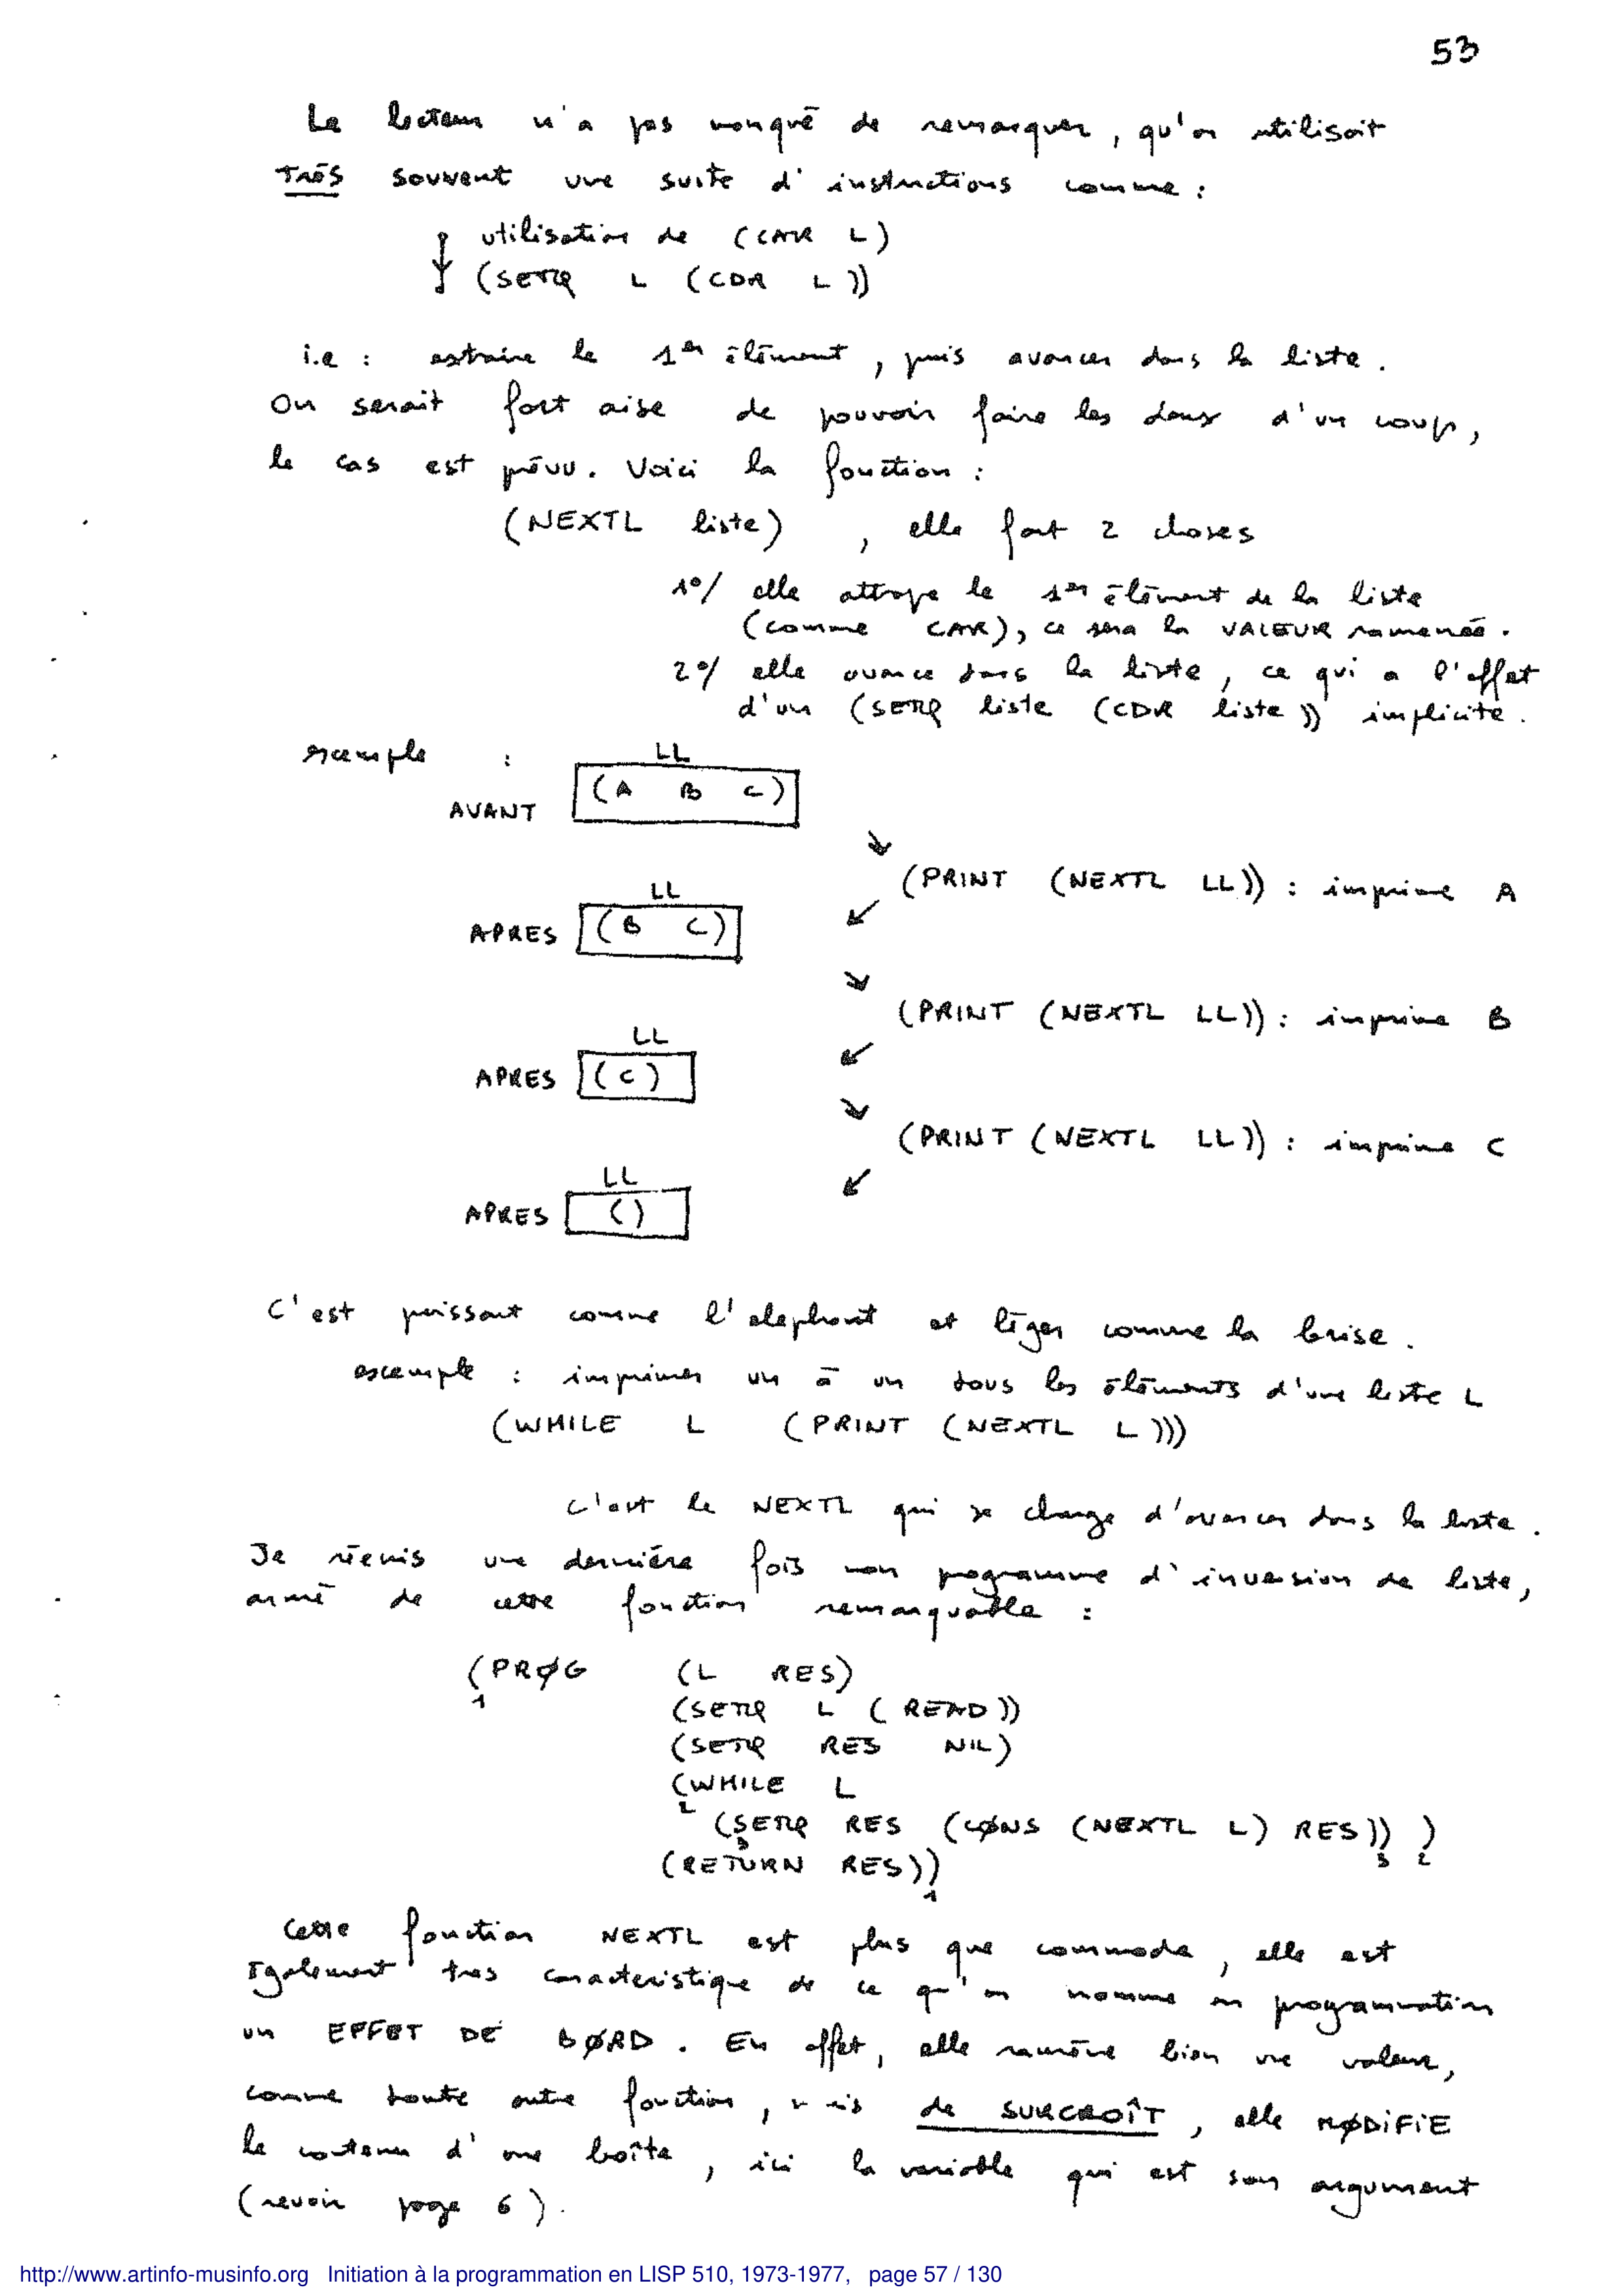 53
Le lecteur n'a pas manqué de remarquer, qu'on utilisait
TRÈS souvent une suite d'instructions comme :
utilisation de (CAR L)
(SETQ L (CDR L))
i.e : extraire le 1er élément, puis avancer dans la liste.
On serait fort aise de pouvoir faire les deux d'un coup,
le cas est prévu. Voici la fonction :
(NEXTL liste) , elle fait 2 choses
1°/ elle attrape le 1er élément de la liste
(comme CAR), ce sera la VALEUR ramenée.
2°/ elle avance dans la liste, ce qui a l'effet
d'un (SETQ liste (CDR liste)) implicite.
exemple : LL
AVANT (A B C)
(PRINT (NEXTL LL)) : imprime A
LL
APRES (B C)
(PRINT (NEXTL LL)) : imprime B
LL
APRES (C)
(PRINT (NEXTL LL)) : imprime C
LL
APRES ()
C'est puissant comme l'elephant et léger comme la brise.
exemple : imprimer un à un tous les éléments d'une liste L
(WHILE L (PRINT (NEXTL L)))
c'est le NEXTL qui se charge d'avancer dans la liste.
Je réécris une dernière fois mon programme d'inversion de liste,
armé de cette fonction remarquable :
(PRØG (L RES)
1
(SETQ L (READ))
(SETQ RES NIL)
(WHILE L
2
(SETQ RES (CØNS (NEXTL L) RES)) )
3 3 2
(RETURN RES))
1
Cette fonction NEXTL est plus que commode, elle est
également tres caracteristique de ce qu'on nomme en programmation
un EFFET DE BØRD. En effet, elle ramène bien une valeur,
comme toute autre fonction, mais de SURCROÎT, elle MØDIFIE
le contenu d'une boîte, ici la variable qui est son argument
(revoir page 6).
http://www.artinfo-musinfo.org Initiation à la programmation en LISP 510, 1973-1977, page 57 / 130